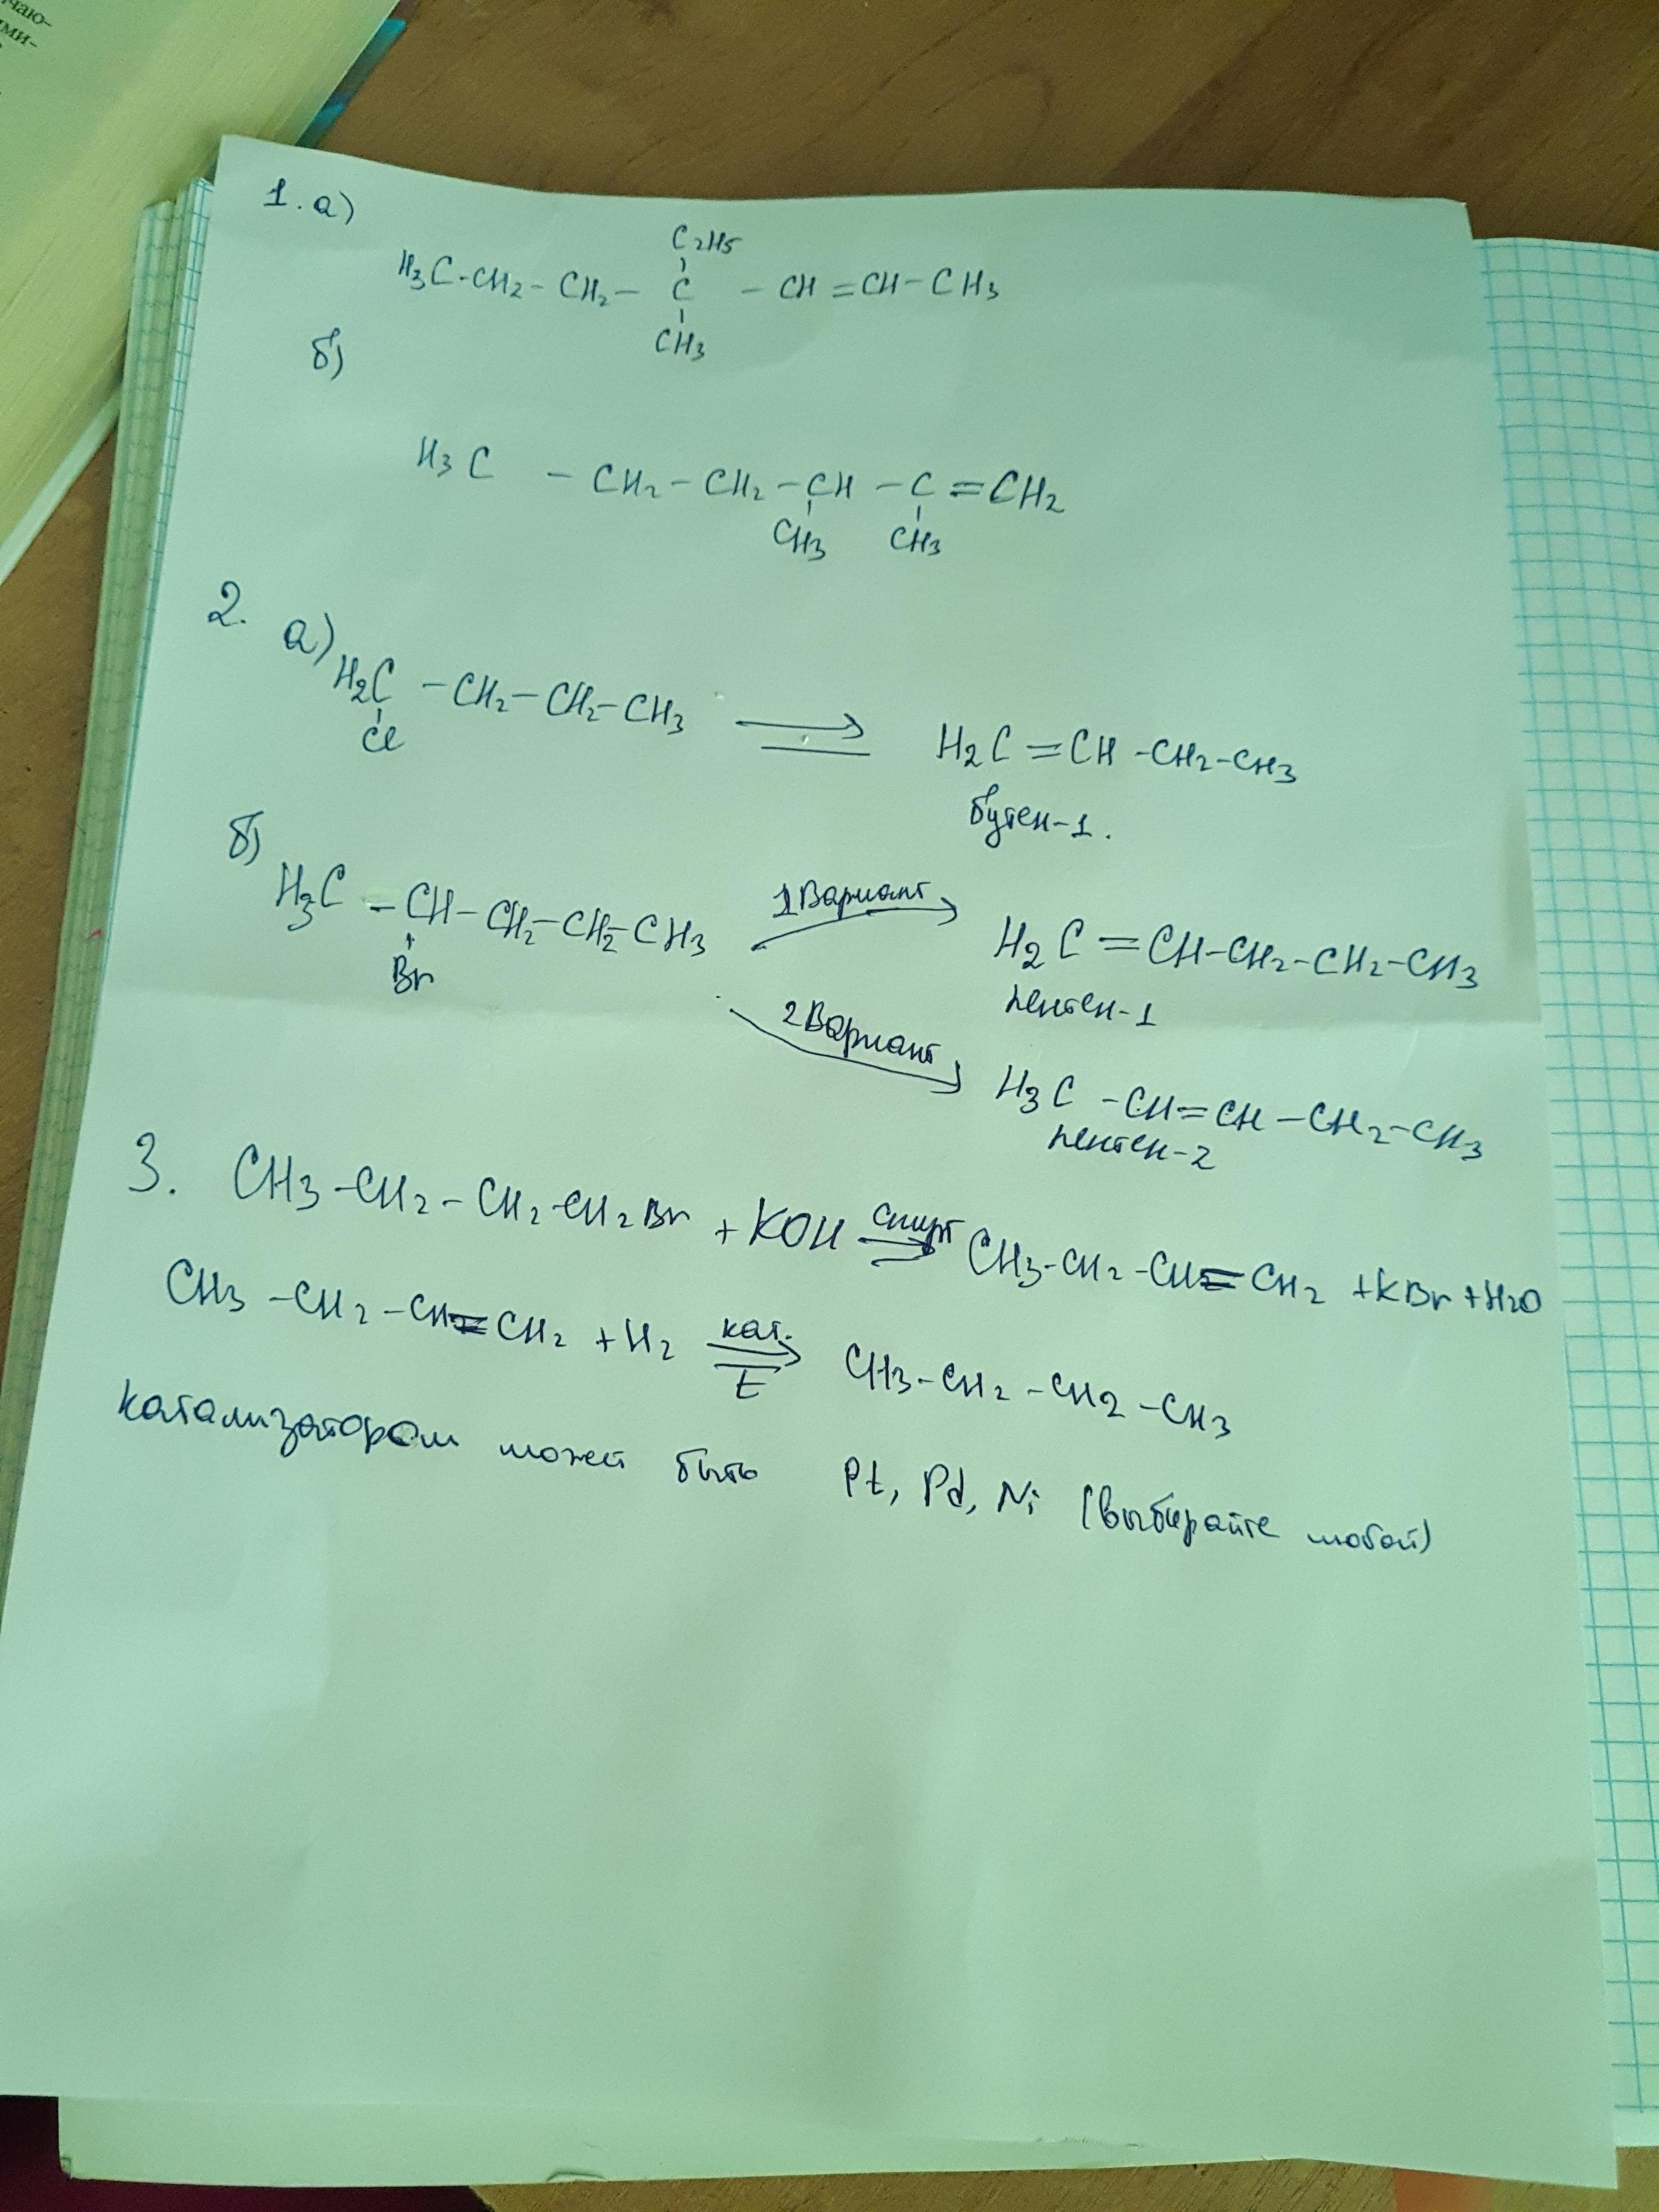 чаю-
ми-
1. а)
C2H5
H3C-CH2-CH2-C-CH=CH-CH3
CH3
б)
H3C-CH2-CH2-CH-C=CH2
CH3 CH3
2. а)
H2C-CH2-CH2-CH3 → H2C=CH-CH2-CH3
Cl
бутен-1.
б)
H3C-CH-CH2-CH2-CH3
Br
1 Вариант
H2C=CH-CH2-CH2-CH3
пентен-1
2 Вариант
H3C-CH=CH-CH2-CH3
пентен-2
3. CH3-CH2-CH2-CH2Br + KOH спирт → CH3-CH2-CH=CH2 + KBr + H2O
CH3-CH2-CH=CH2 + H2 кат. → t CH3-CH2-CH2-CH3
катализатором может быть Pt, Pd, Ni (выбирайте любой)